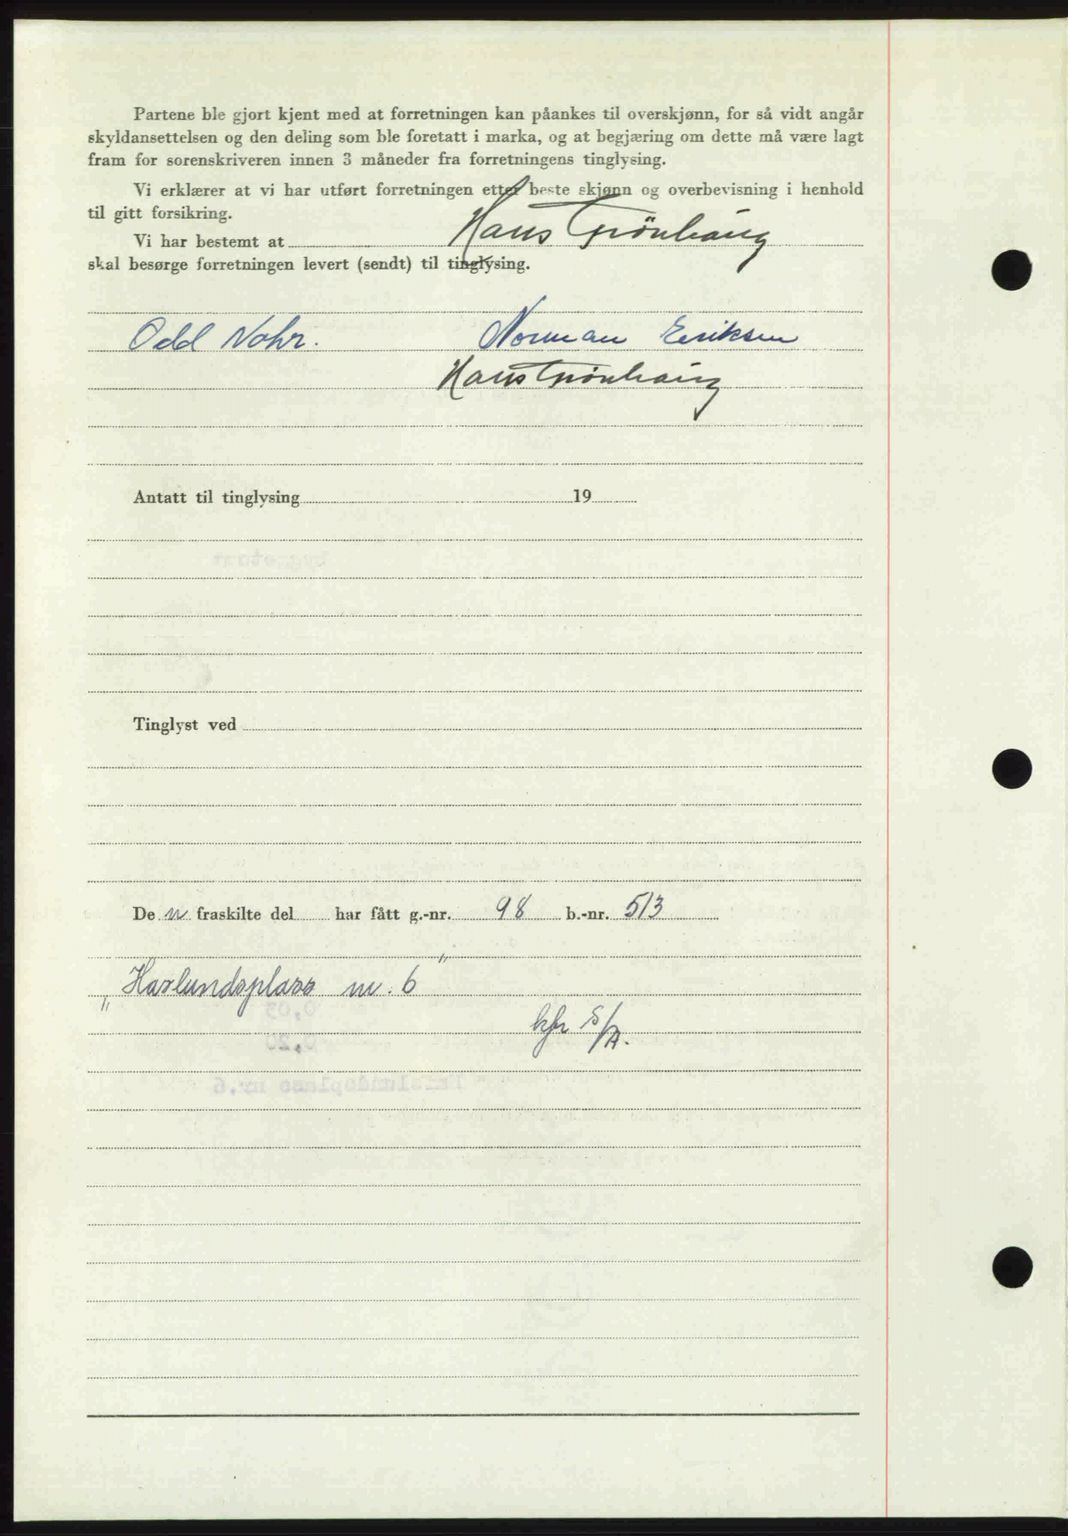 Partene ble gjort kjent med at forretningen kan påankes til overskjønn, for så vidt angår
skyldansettelsen og den deling som ble foretatt i marka, og at begjæring om dette må være lagt
fram for sorenskriveren innen 3 måneder fra forretningens tinglysing.
Vi erklærer at vi har utført forretningen etter beste skjønn og overbevisning i henhold
til gitt forsikring.
Vi har bestemt at Hans Grönhaug
skal besørge forretningen levert (sendt) til tinglysing.
Odd Nohr. Norman Eriksen
Hans Grönhaug
Antatt til tinglysing 19
Tinglyst ved
De n fraskilte del har fått g.-nr. 98 b.-nr. 513
„Haslundsplass nr. 6"
kfr S/A.